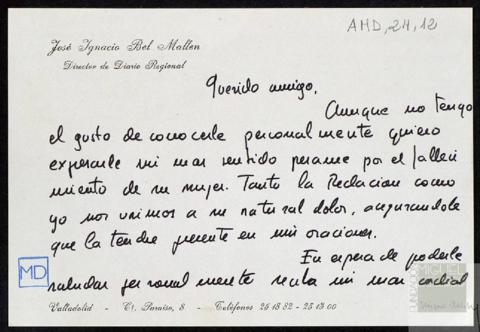 AMD, 24, 12
José Ignacio Bel Mallen
Director de Diario Regional
Querido amigo,
Aunque no tengo
el gusto de conocerle personalmente quiero
expresarle mi mas sentido pesame por el falleci
miento de su mujer. Tanto la Redaccion como
yo nos unimos a su natural dolor, asegurandole
que la tendre presente en mis oraciones.
En espera de poderle
saludar personalmente reciba mi mas cordial
MD
Valladolid - Ct. Paraiso, 8 - Teléfonos 24 13 82 - 25 13 00
FUNDACIÓN MIGUEL